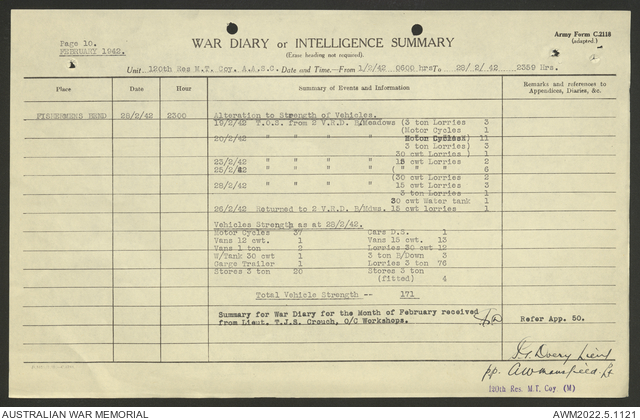 Page 10.
FEBRUARY 1942.
WAR DIARY or INTELLIGENCE SUMMARY
(Erase heading not required).
Army Form C.2118
(adapted.)
Unit 120th Res M.T. Coy. A.A.S.C. Date and Time—From 1/2/42 0600 hrs To 28/2/42 2359 Hrs.
Place Date Hour Summary of Events and Information Remarks and references to Appendices, Diaries, &c.
FISHERMENS BEND 28/2/42 2300 Alteration to Strength of Vehicles.
19/2/42 T.O.S. from 2 V.R.D. B/Meadows (3 ton Lorries 3
(Motor Cycles 1
20/2/42 " " " " Motor Cycles) 11
3 ton Lorries) 3
30 cwt Lorries ) 1
23/2/42 " " " " 15 cwt Lorries 2
25/2/42 " " " " ( " " " 6
(30 cwt Lorries 2
28/2/42 " " " " 15 cwt Lorries 3
3 ton Lorries 1
30 cwt Water tank 1
26/2/42 Returned to 2 V.R.D. B/Mdws. 15 cwt lorries 1
Vehicles Strength as at 28/2/42.
Motor Cycles 37 Cars D.S. 1
Vans 12 cwt. 1 Vans 15 cwt. 13
Vans 1 ton 2 Lorries 30 cwt 12
W/Tank 30 cwt 1 3 ton B/Down 3
Cargo Trailer 1 Lorries 3 ton 76
Stores 3 ton 20 Stores 3 ton
(fitted) 4
Total Vehicle Strength -- 171
Summary for War Diary for the Month of February received
from Lieut. T.J.S. Crouch, O/C Workshops.
Refer App. 50.
Lieut
pp. AW Mansfield Lt
120th Res. M.T. Coy. (M)
AUSTRALIAN WAR MEMORIAL
AWM2022.5.1121